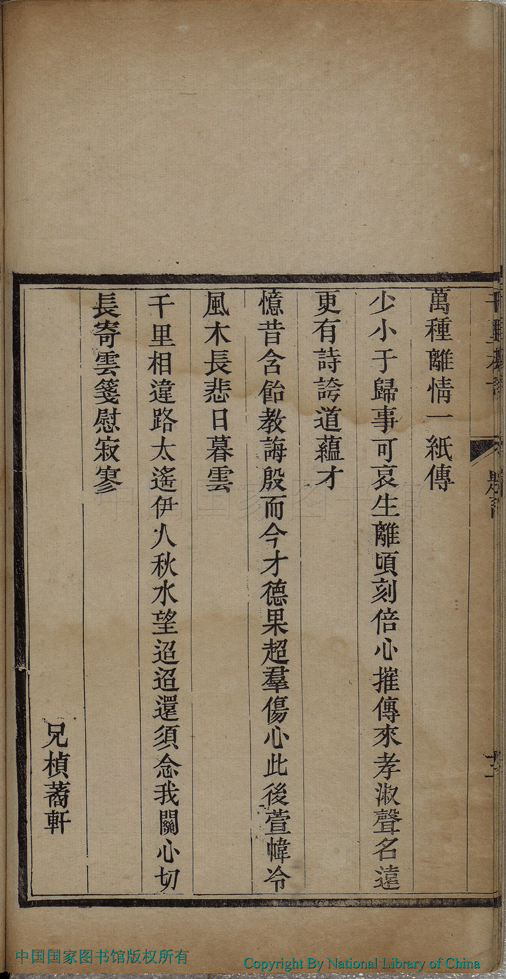 萬種離情一紙傳
少小于歸事可哀生離頃刻倍心摧傳來孝淑聲名遠
更有詩誇道蘊才
憶昔含飴教誨殷而今才德果超羣傷心此後萱幃冷
風木長悲日暮雲
千里相違路太遙伊人秋水望迢迢還須念我關心切
長寄雲箋慰寂寥
兄楨蕎軒
中国国家图书馆版权所有
Copyright By National Library of China